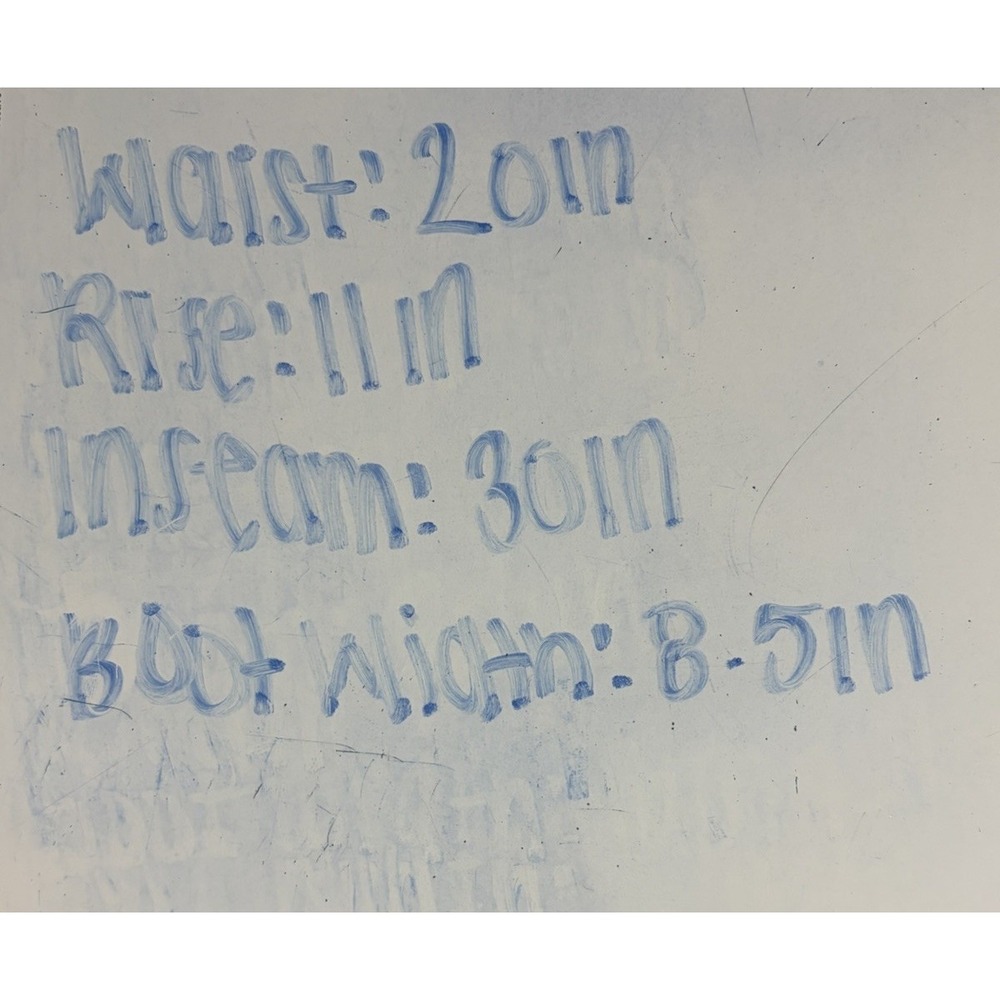 Waist: 20in
Rise: 11in
Inseam: 30in
Boot Width: 8.5in